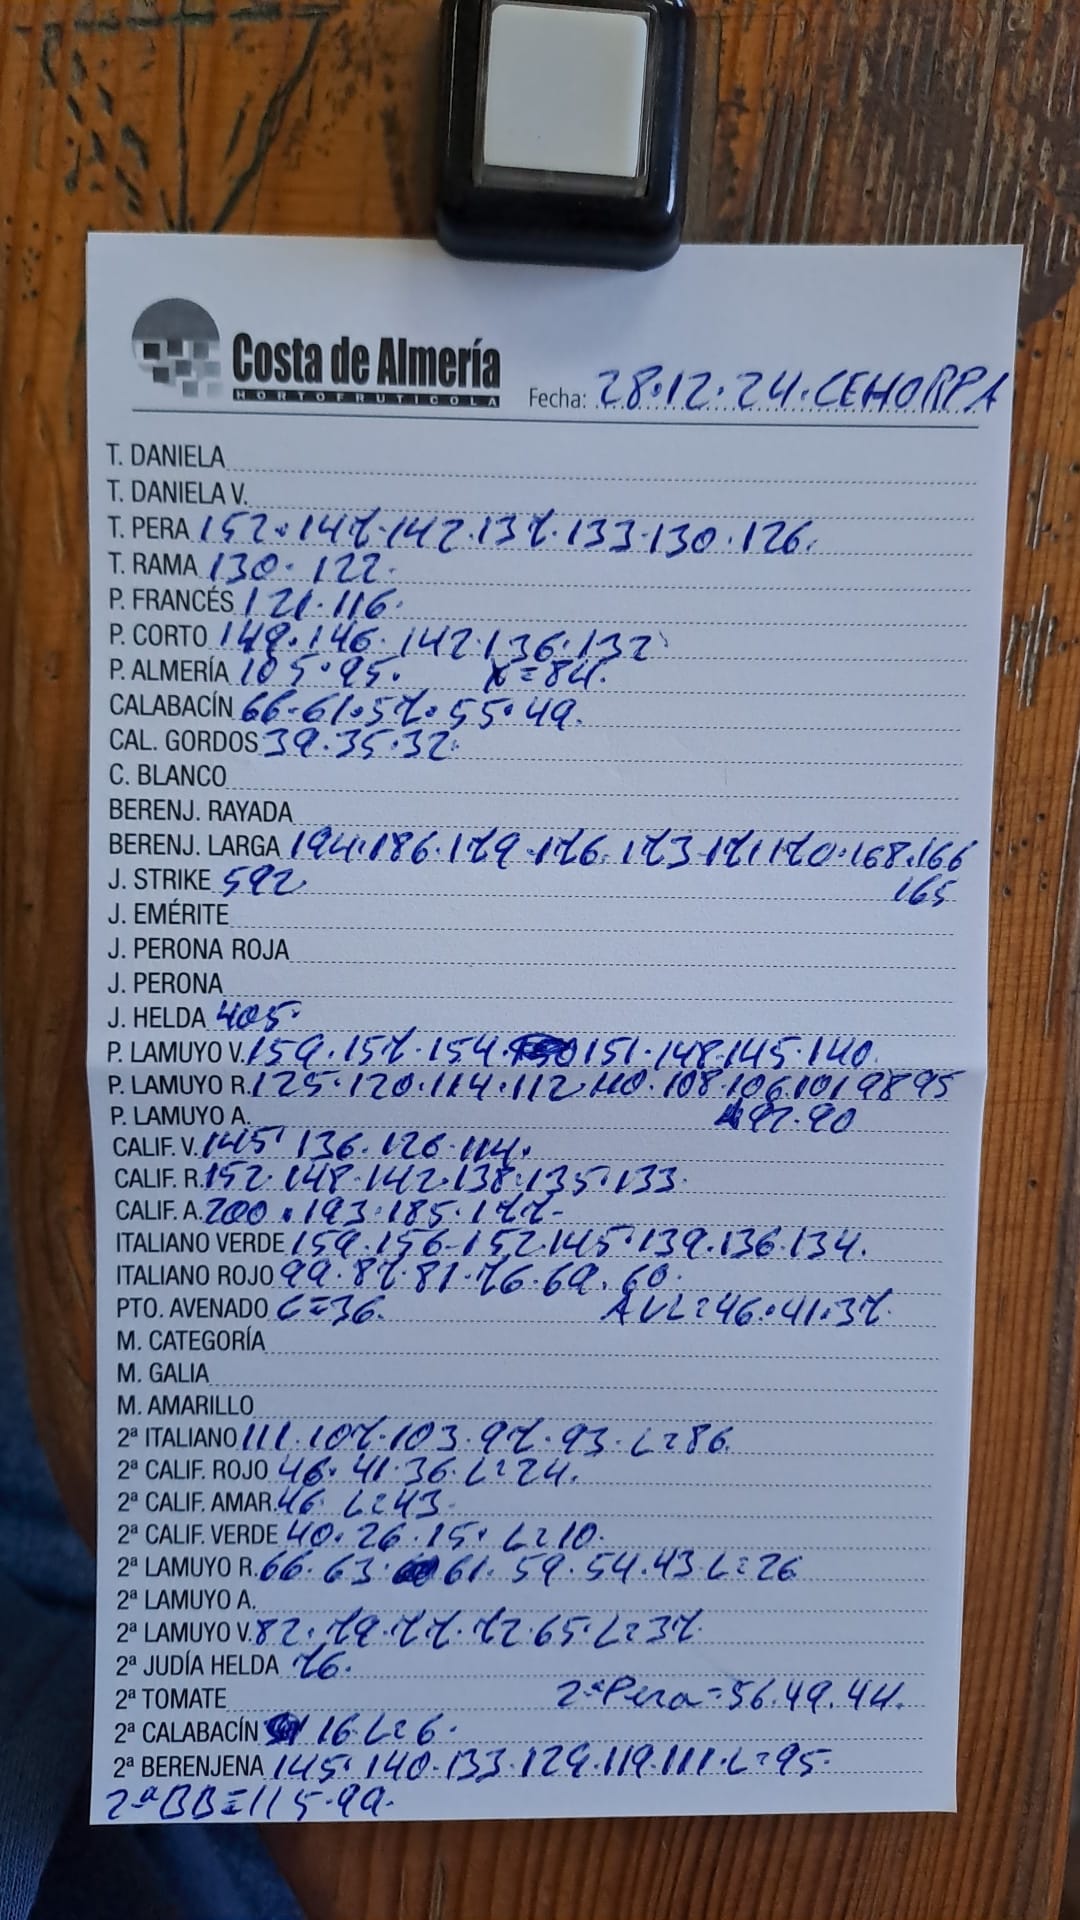 Costa de Almería
HORTOFRUTICOLA
Fecha: 28.12.24. CEHORPA
T. DANIELA
T. DANIELA V.
T. PERA 152.147.142.137.133.130.126.
T. RAMA 130. 122.
P. FRANCÉS 121.116.
P. CORTO 149.146.142.136.132
P. ALMERÍA 105.95. X=84.
CALABACÍN 66.61.57.55.49.
CAL. GORDOS 39.35.32.
C. BLANCO
BERENJ. RAYADA
BERENJ. LARGA 194.186.179.176.173.171.170.168.166
J. STRIKE 592 165
J. EMÉRITE
J. PERONA ROJA
J. PERONA
J. HELDA 405.
P. LAMUYO V. 159.157.154. 151.148.145.140.
P. LAMUYO R. 125.120.114.112.110.108.106.101 98 95
P. LAMUYO A. 92.90
CALIF. V. 145 136.126.114.
CALIF. R. 152.148.142.138.135.133.
CALIF. A. 200.193.185.177-
ITALIANO VERDE 159.156-152.145.139.136.134.
ITALIANO ROJO 99.87.81.76.69.60.
PTO. AVENADO C=36. AVL=46.41.37.
M. CATEGORÍA
M. GALIA
M. AMARILLO
2ª ITALIANO 111.107.103.97.93.L=86.
2ª CALIF. ROJO 46.41.36.L=24.
2ª CALIF. AMAR. 46. L=43.
2ª CALIF. VERDE 40.26.15. L=10.
2ª LAMUYO R. 66.63. 61.59.54.43.L=26
2ª LAMUYO A.
2ª LAMUYO V. 82.79.77.72.65.L=37.
2ª JUDÍA HELDA 76.
2ª TOMATE 2ªPera=56.49.44.
2ª CALABACÍN 16.L=6.
2ª BERENJENA 145.140.133.129.119.111.L=95.
2ªBB=115.99.